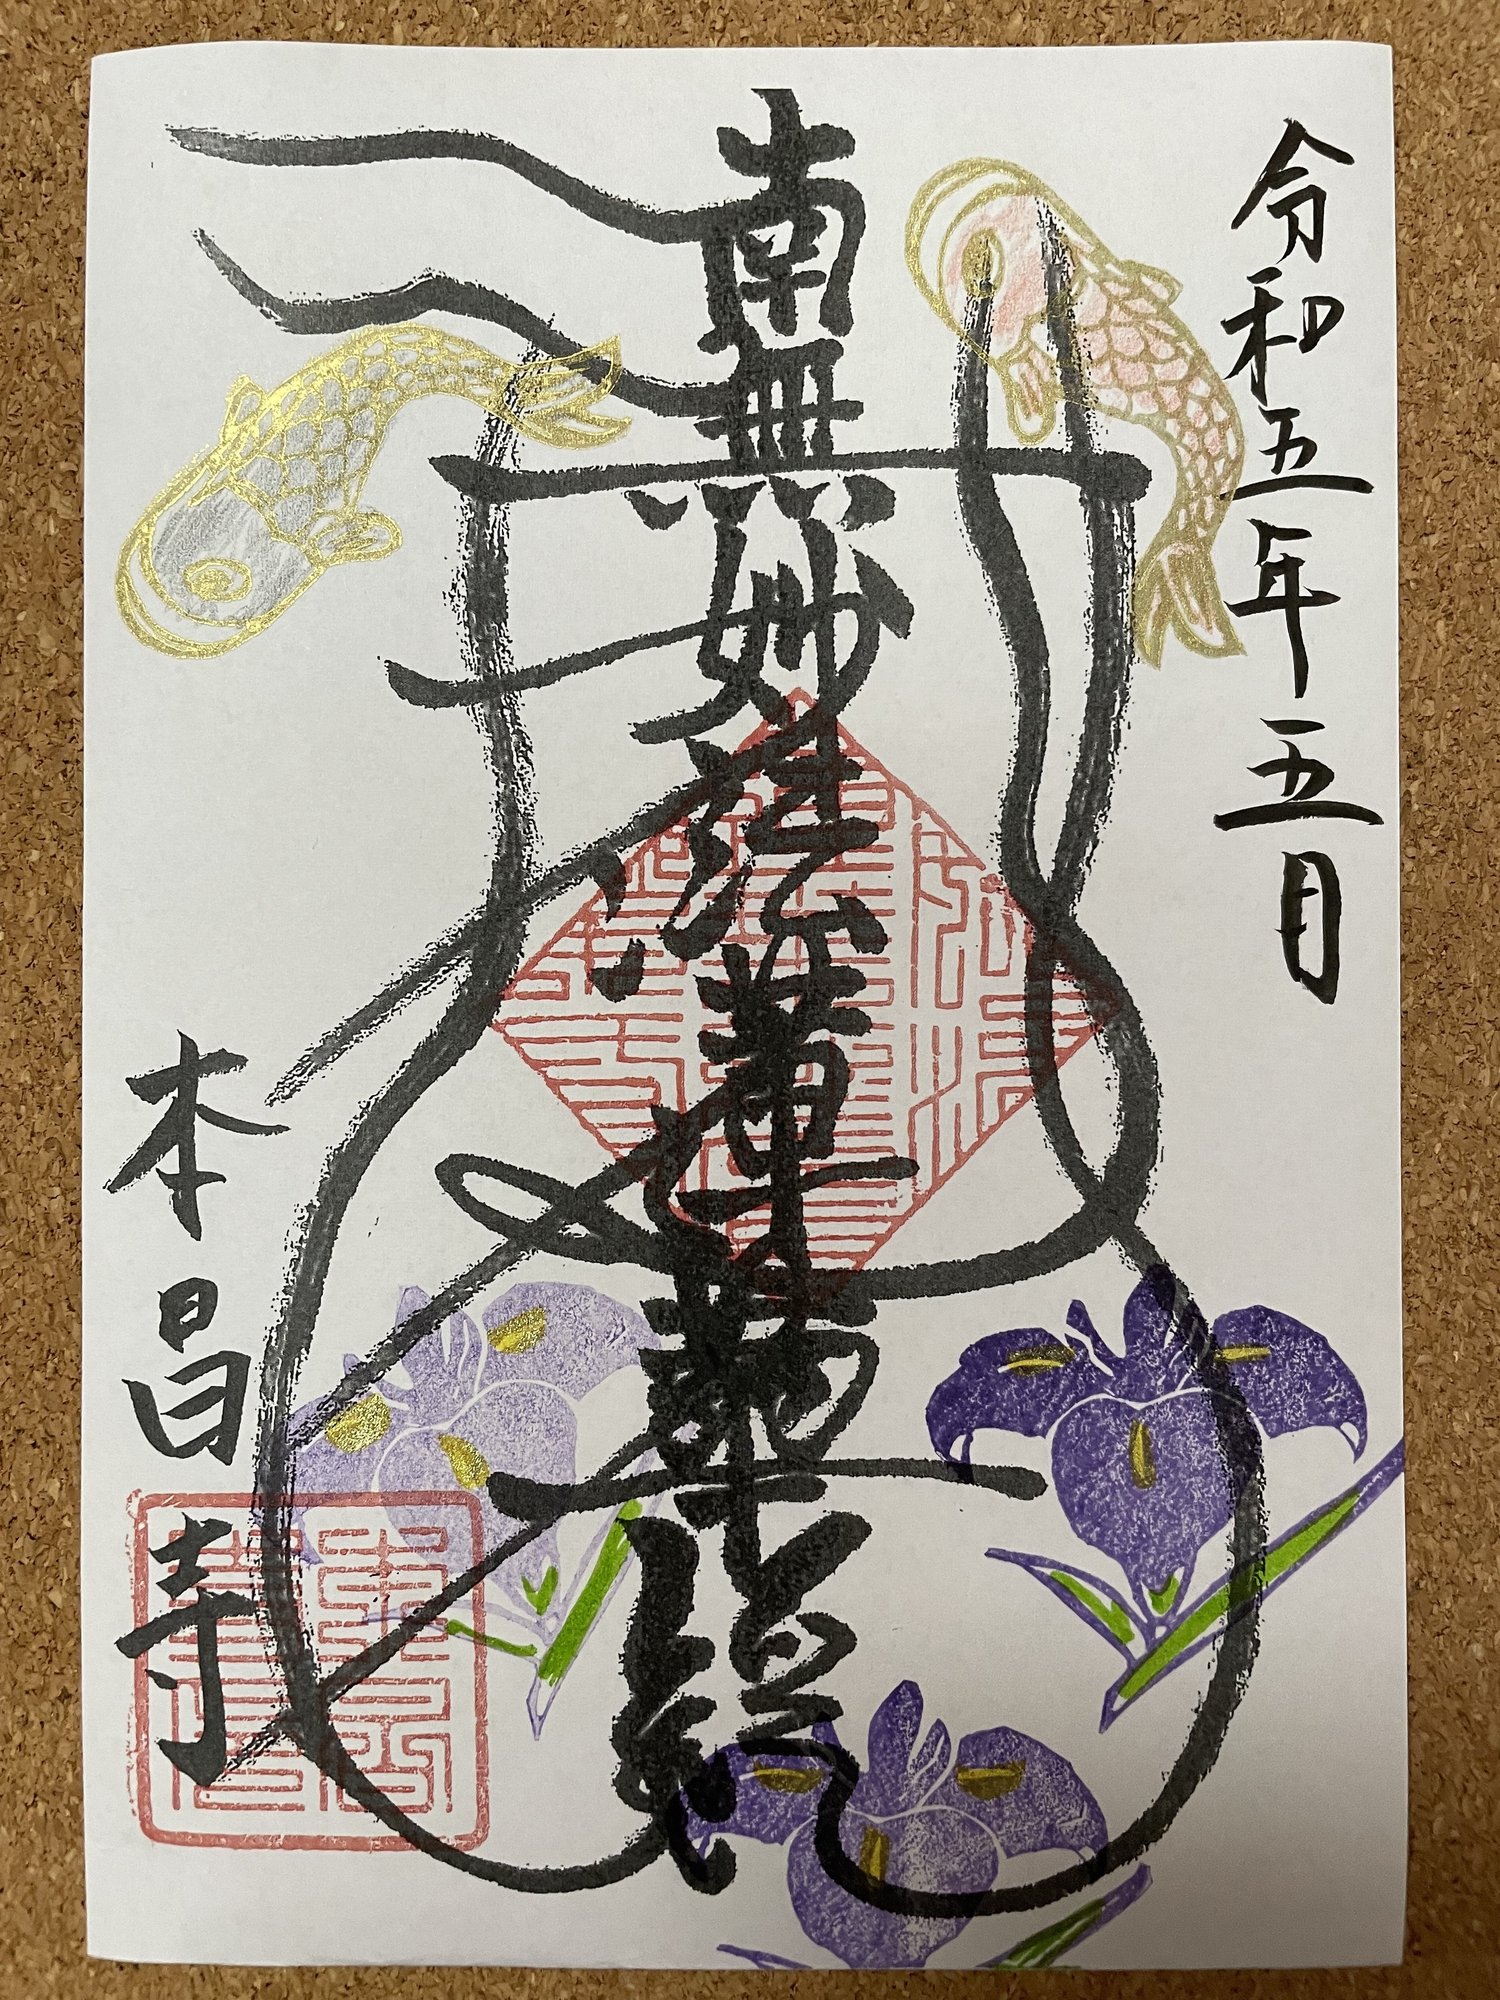 令和五年五月
南無妙法蓮華経
本昌寺